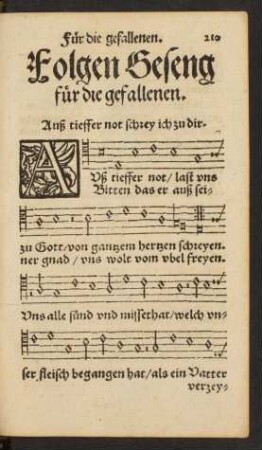 Für die gefallenen. 210
Folgen Geseng
für die gefallenen.
Auß tieffer not schrey ich zu dir.
AVß tieffer not/ last vns
Bitten das er auß sei-
zu Gott/ von gantzem hertzen schreyen.
ner gnad / vns wolt vom vbel freyen.
Vns alle sünd vnd missethat/ welch vn-
ser fleisch begangen hat/ als ein Vatter
verzey-